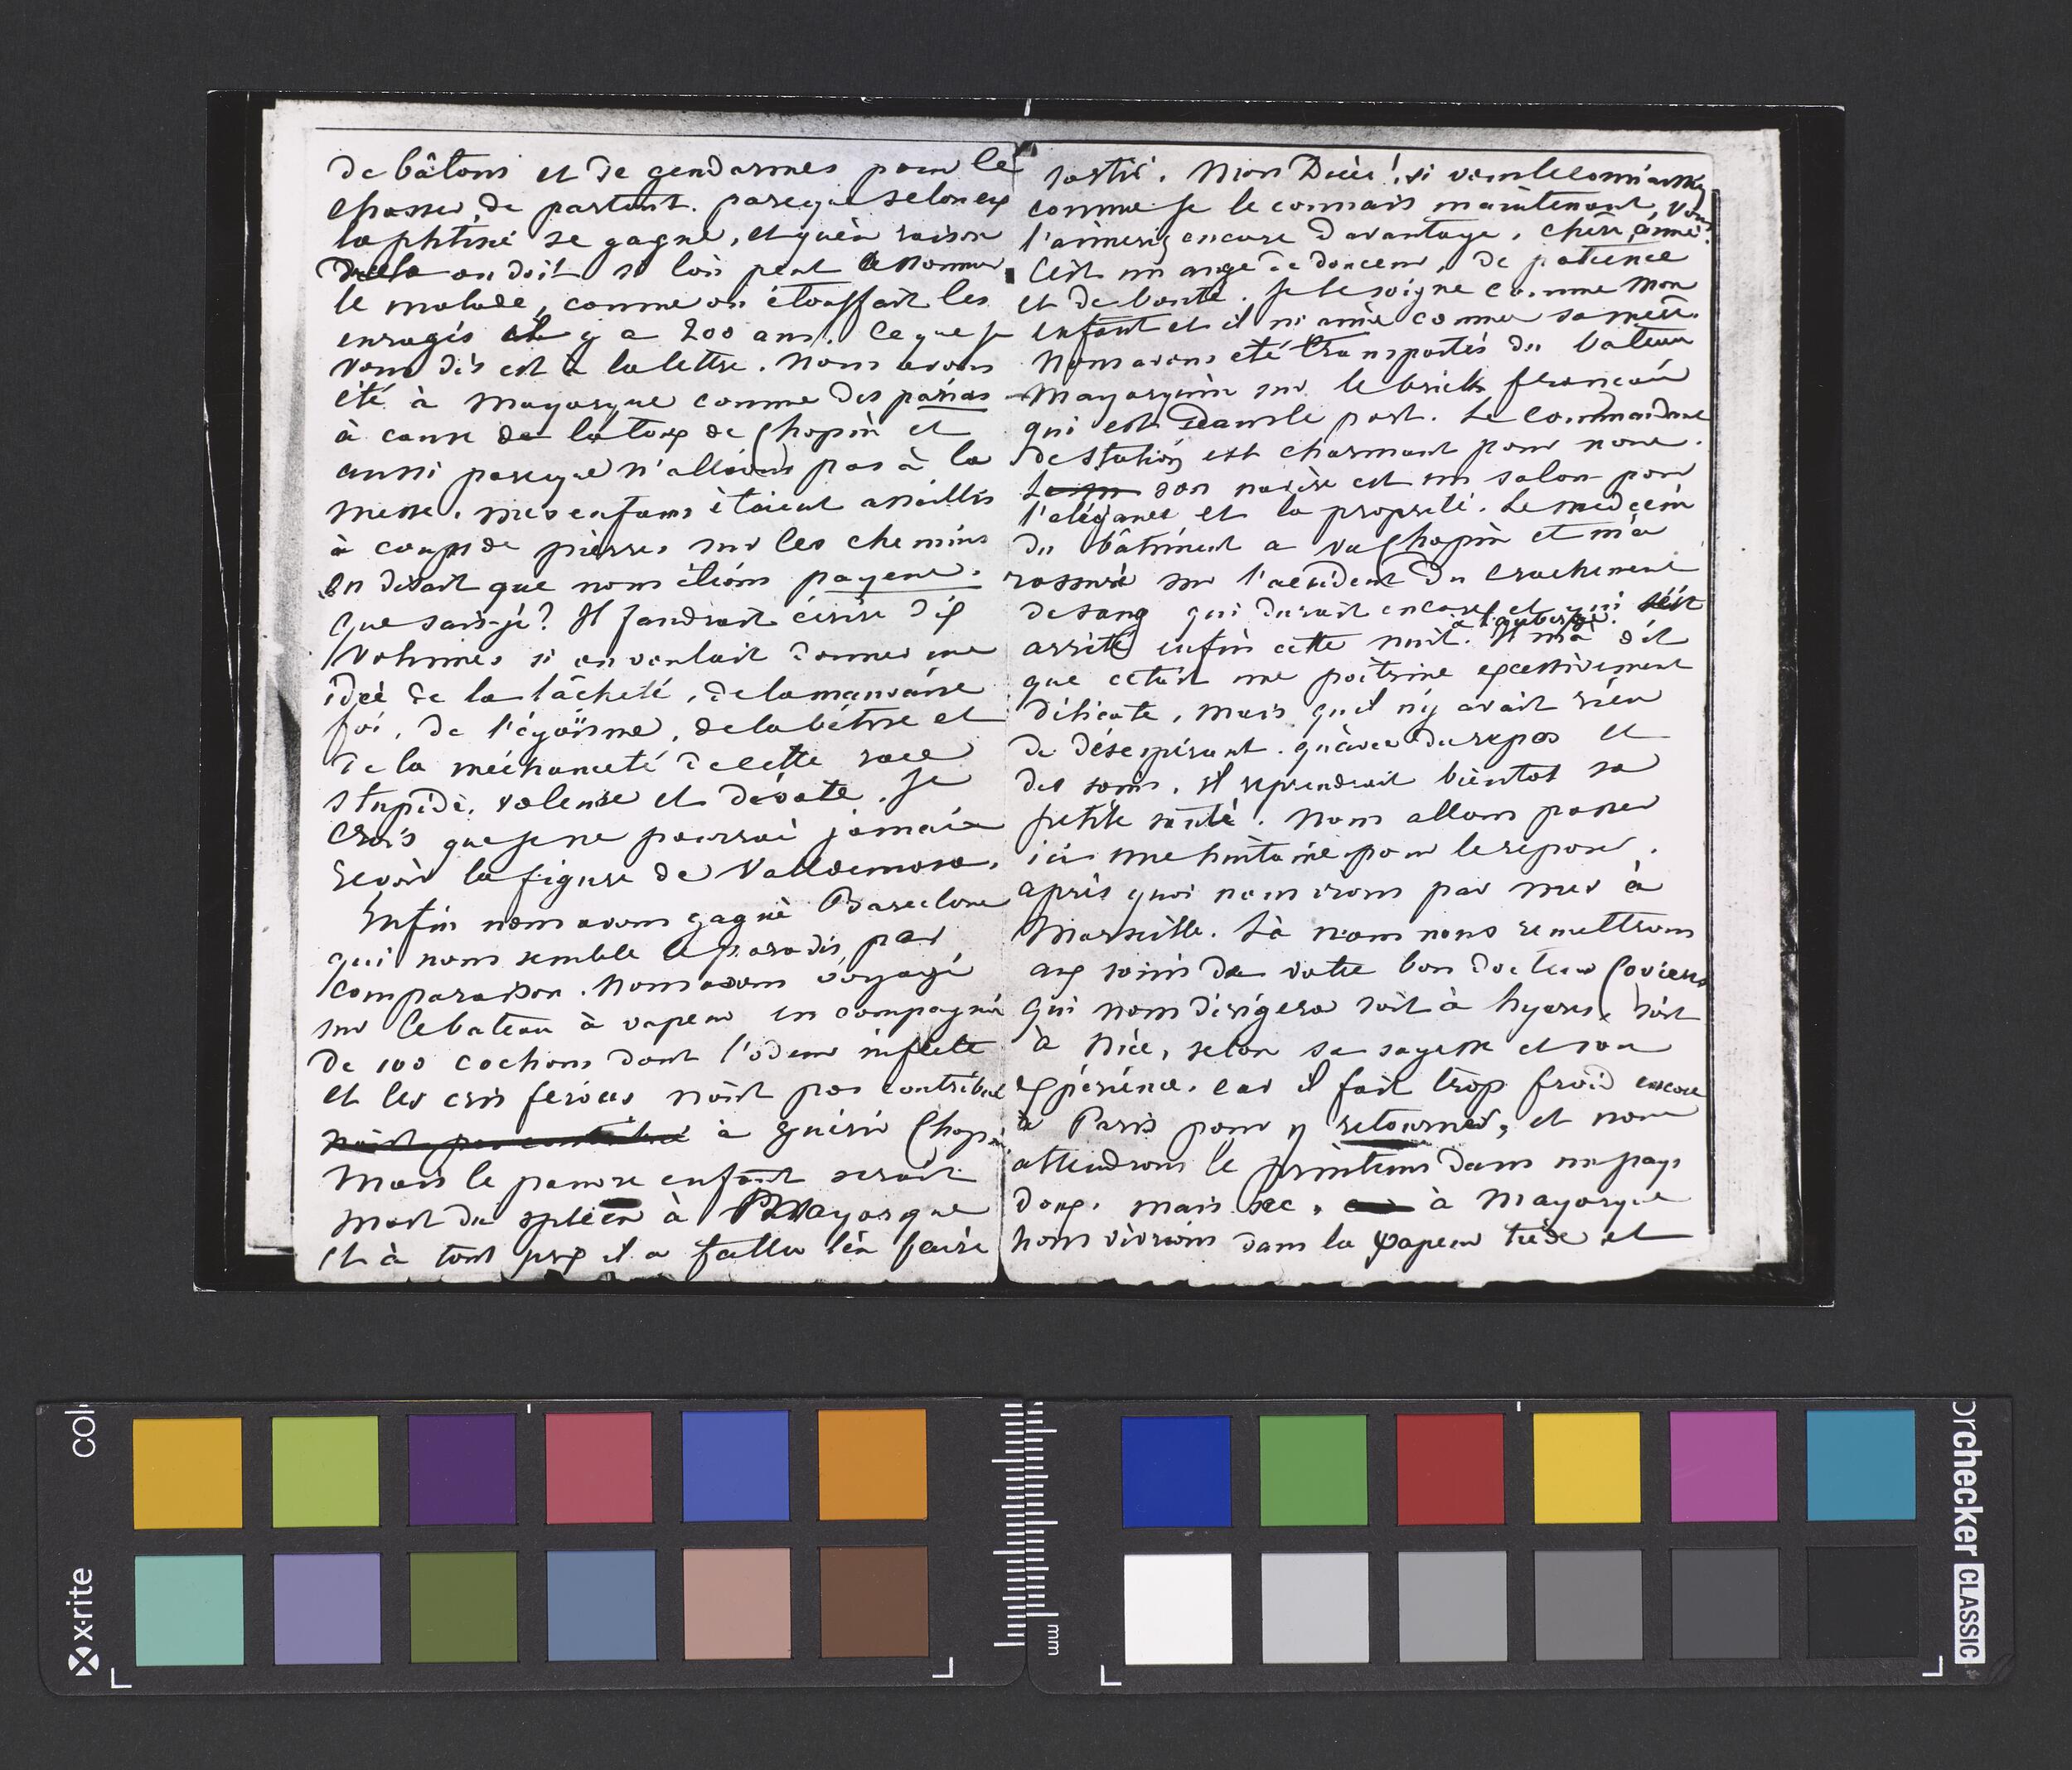 de bâtons et de gendarmes pour le
chasser de partout. parceque selon eux
la phtisie se gagne, et qu'en raison
de cela on doit si l'on peut assommer
le malade, comme on étouffait les
enragés il y a 200 ans. Ce que je
vous dis est à la lettre. Nous avons
été à Mayorque comme des parias
à cause de la toux de Chopin et
aussi parceque n'allions pas à la
messe. mes enfans étaient assaillis
à coups de pierres sur les chemins
on disait que nous étions payens.
Que sais-je? Il faudrait écrire dix
volumes si on voulait donner une
idée de la lâcheté, de la mauvaise
foi, de l'égoïsme, de la bêtise et
de la méchanceté de cette race
stupide, voleuse et dévote. Je
crois que je ne pourrai jamais
revoir la figure de Valldemosa.
Enfin nous avons gagné Barcelone
qui nous semble le paradis par
comparaison. Nous avons voyagé
sur le bateau à vapeur en compagnie
de 100 cochons dont l'odeur infecte
et les cris feroces n'ont pas contribué
n'ont pas contribué à guérir Chopin
Mais le pauvre enfant serait
mort du spleen à Mayorque
et à tout prix il a fallu l'en faire
sortir. Mon Dieu! si vous le connaissiez
comme je le connais maintenant, vous
l'aimeriez encore davantage, chère amie.
C'est un ange de douceur, de patience
et de bonté. Je le soigne comme mon
enfant et il m'aime comme sa mère.
Nous avons été transportés du bateau
Mayorquin sur le brick français
qui est dans le port. Le commandant
de station est charmant pour nous.
son navire est un salon pour
l'élégance et la propreté. Le medecin
du bâtiment a vu Chopin et m'a
rassuré sur l'accident du crachement
de sang qui durait encore, et qui s'est
arrêté enfin cette nuit à l'auberge. Il m'a dit
que c'était une poitrine excessivement
délicate, mais qu'il n'y avait rien
de désespérant. qu'avec du repos et
des soins, il reprendrait bientot sa
petite santé. Nous allons passer
ici une huitaine pour le reposer.
après quoi nous irons par mer à
Marseille. Là nous nous remettrons
aux soins de votre bon docteur Coviere
qui nous dirigera soit à hyeres, soit
à Nice, selon sa sagesse et son
expérience. car il fait trop froid encore
à Paris pour y retourner, et nous
attendrons le printems dans un pays
doux, mais sec. à Mayorque
nous vivions dans la vapeur tiède et